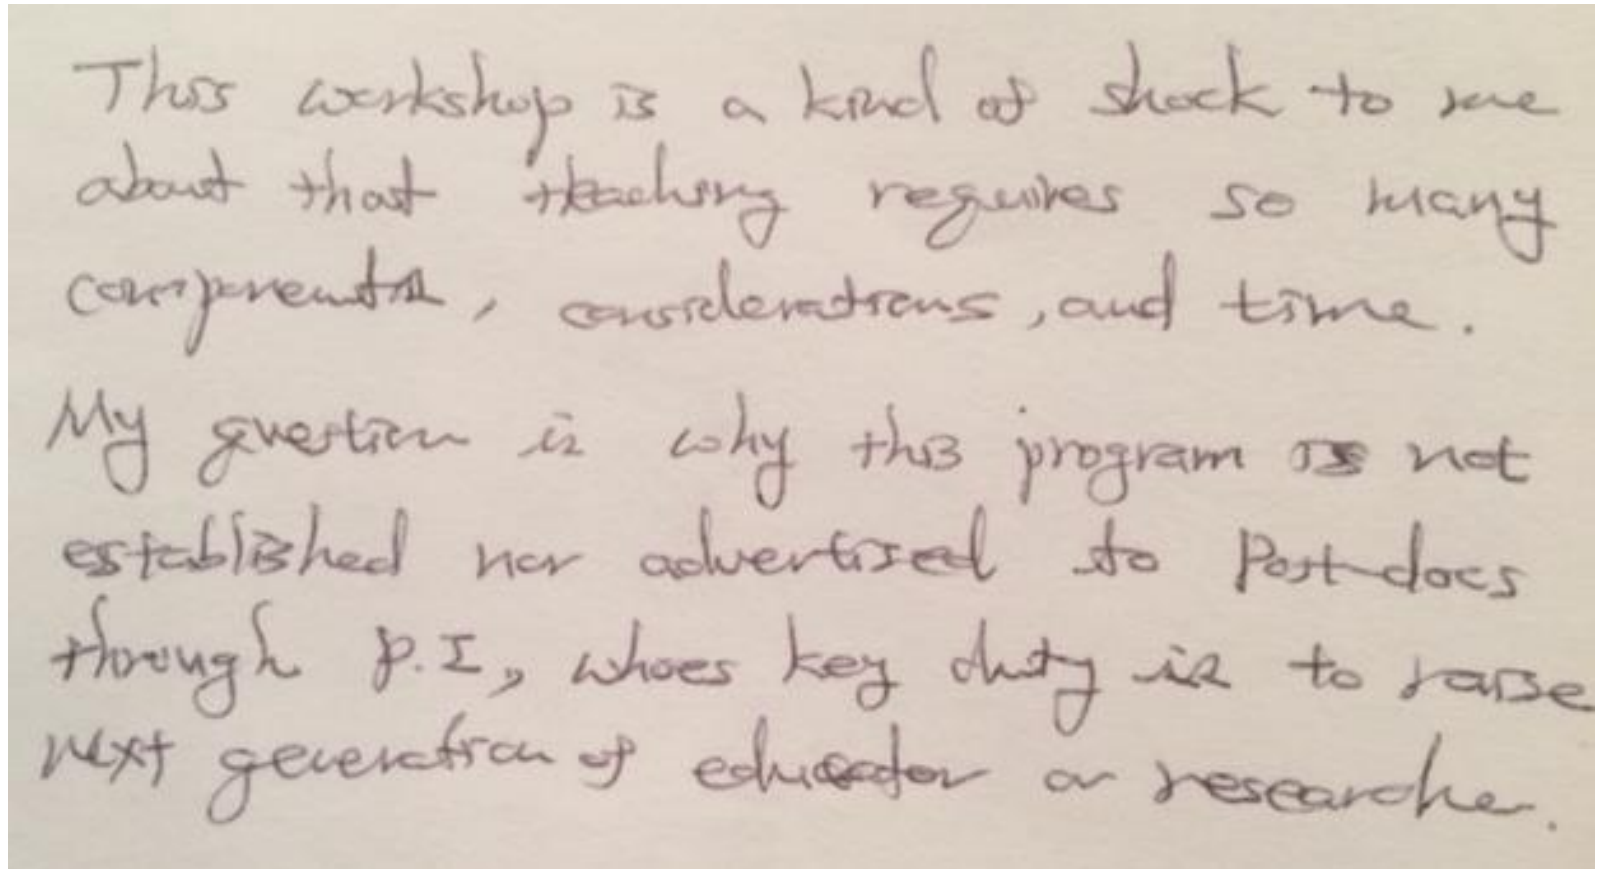 This workshop is a kind of shock to me
about that teaching requires so many
components, considerations, and time.
My question is why this program is not
established nor advertised to Post-docs
through P.I, whoes key duty is to raise
next generation of educator or researcher.